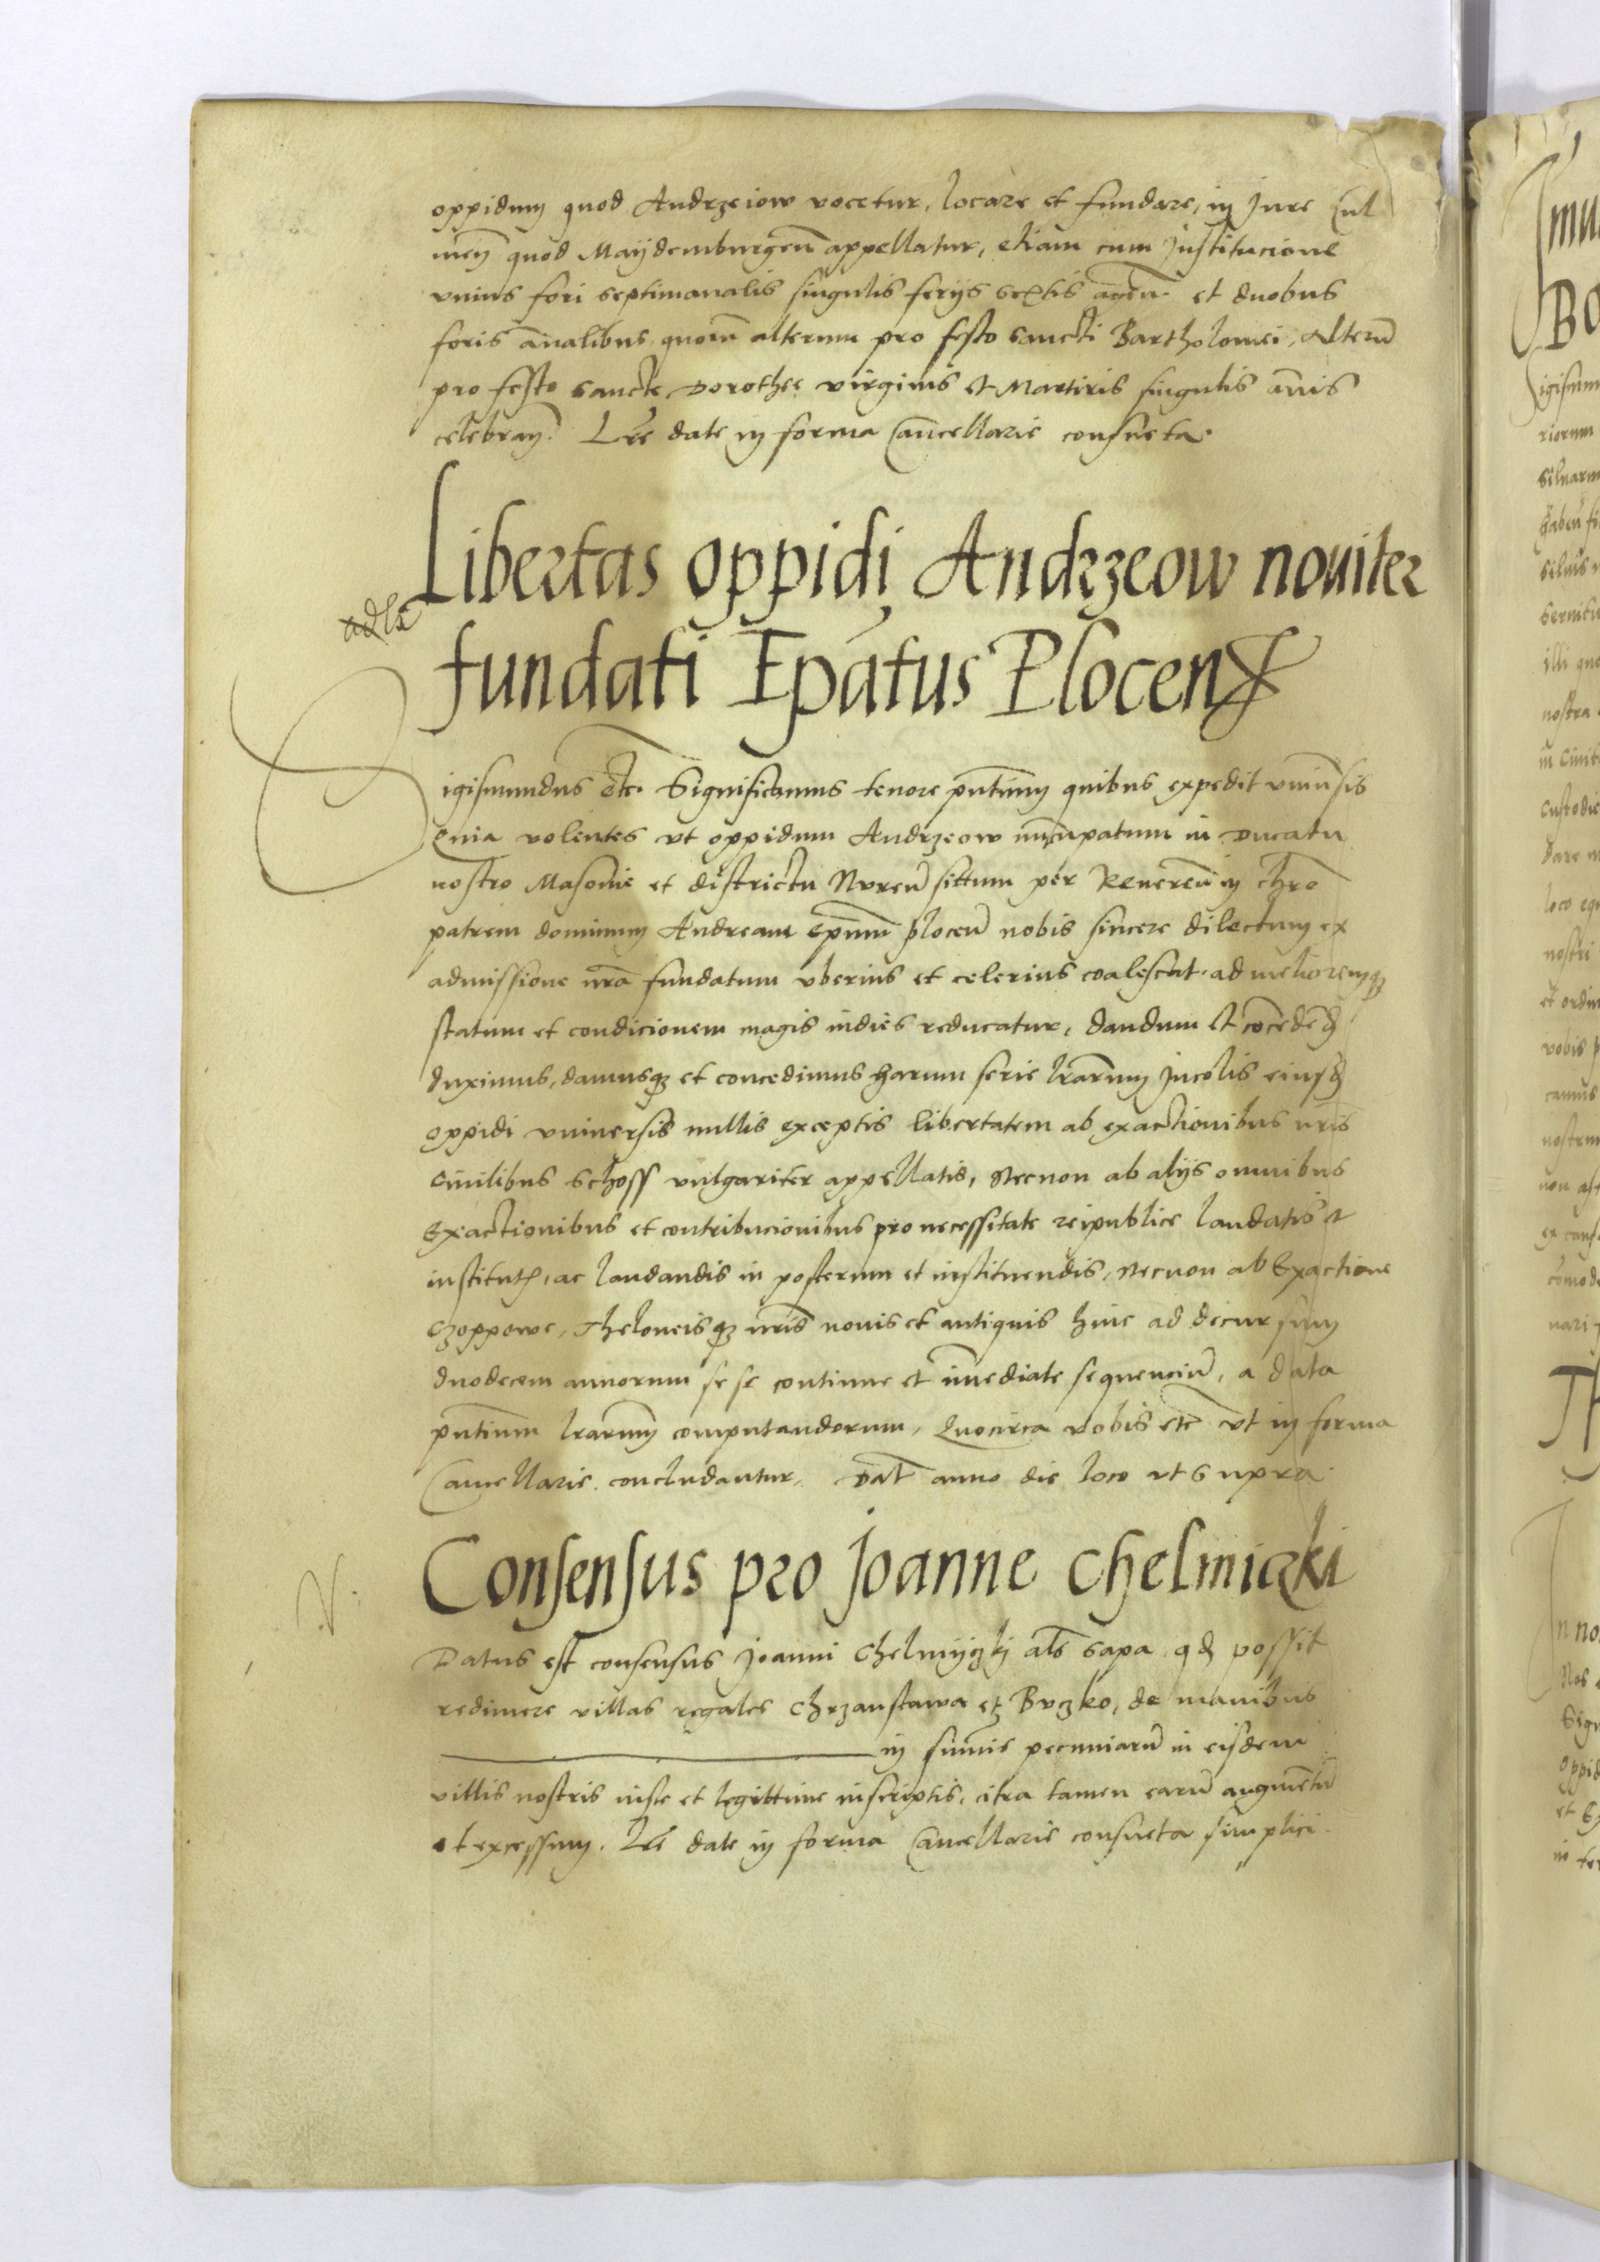 oppidum quod Andrzeiow vocetur, locare et fundare, in Jure Cul
men̄ quod Maÿdemburgen̄ appellatur, etiam cum Institucione
vnius fori septimanalis singulis ferijs sextis agen̄. et duobus
foris an̄alibus quor̄u alterum pro festo sancti Bartholomei, Alter̄u
pro festo sancte Dorothee virginis et Martiris singulis an̄is
celebran̄. Lr̄e date in forma Cancellarie consueta.
Libertas oppidi Andrzeow nouiter
fundati Ep̄atus Plocen̄
Sigismundus etc. Significamus tenore pn̄tium quibus expedit vniuersis
Quia volentes vt oppidum Andrzeow nuncupatum in Ducatu
nostro Masouie et districtu Nuren̄ sittum per Reueren̄ in chr̄o
patrem dominum Andream ep̄um plocen̄ nobis sincere dilectum ex
admissione nr̄a fundatum vberius et celerius coalescat. ad melioremqꝫ
statum et condicionem magis indies reducatur, dandum et co̅ceden̄
duximus, damusqꝫ et concedimus harum serie lr̄arum Incolis eiusd̄
oppidi vniuersis nullis exceptis libertatem ab exactionibus nr̄is
Ciuilibus schoss vulgariter appellatis, Necnon ab alijs omnibus
Exactionibus et contribucionibus pro necessitate reipublice laudatis et
institut̄, ac laudandis in posterum et instituendis, Necnon ab Exactione
czoppowe, Theloneisqꝫ nr̄is nouis et antiquis hinc ad decursum
duodecem annorum se se continue et im̄ediate sequenciū, a data
pn̄tium lr̄arum computandorum, Quocirca vobis etc̄ vt in forma
Cancellarie concludantur. Dat̄ anno die loco vt supra.
Consensus pro Joanne Chelmiczki
Datus est consensus Joanni Chelmÿczkj al̄s sapa qd̄ possit
redimere villas regales Chrzanstawa et Buczko, de manibus
in summe pecuniarū in eisdem
villis nostris iuste et legittime inscriptis, citra tamen earū augmentū
et excessum. Lr̄e date in forma Cancellarie consueta simplici.